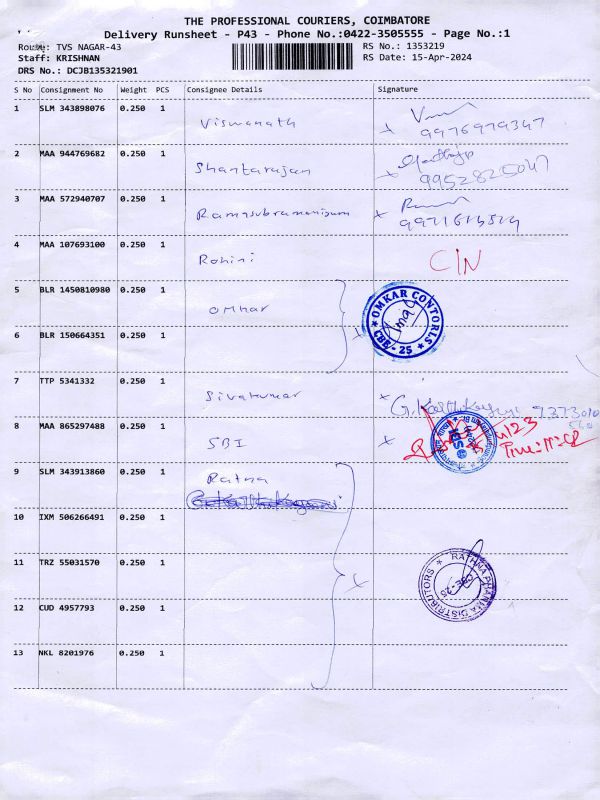 THE PROFESSIONAL COURIERS, COIMBATORE
Delivery Runsheet - P43 - Phone No.:0422-3505555 - Page No.:1
Route: TVS NAGAR-43 RS No.: 1353219
Staff: KRISHNAN RS Date: 15-Apr-2024
DRS No.: DCJB135321901
S No Consignment No Weight PCS Consignee Details Signature
1 SLM 343898076 0.250 1 Viswanath
9976979347
2 MAA 944769682 0.250 1 Shantarajan
9952825047
3 MAA 572940707 0.250 1 Ramasubramanigum
4 MAA 107693100 0.250 1 Rohini CIN
5 BLR 1450810980 0.250 1 Omkar
OMKAR CONTORLS
CBE - 25
6 BLR 150664351 0.250 1
7 TTP 5341332 0.250 1 Sivakumar
8 MAA 865297488 0.250 1 SBI
9 SLM 343913860 0.250 1 Ratna
10 IXM 506266491 0.250 1
11 TRZ 55031570 0.250 1
RATHNA PHARMA DISTRIBUTORS
CBE-25
12 CUD 4957793 0.250 1
13 NKL 8201976 0.250 1